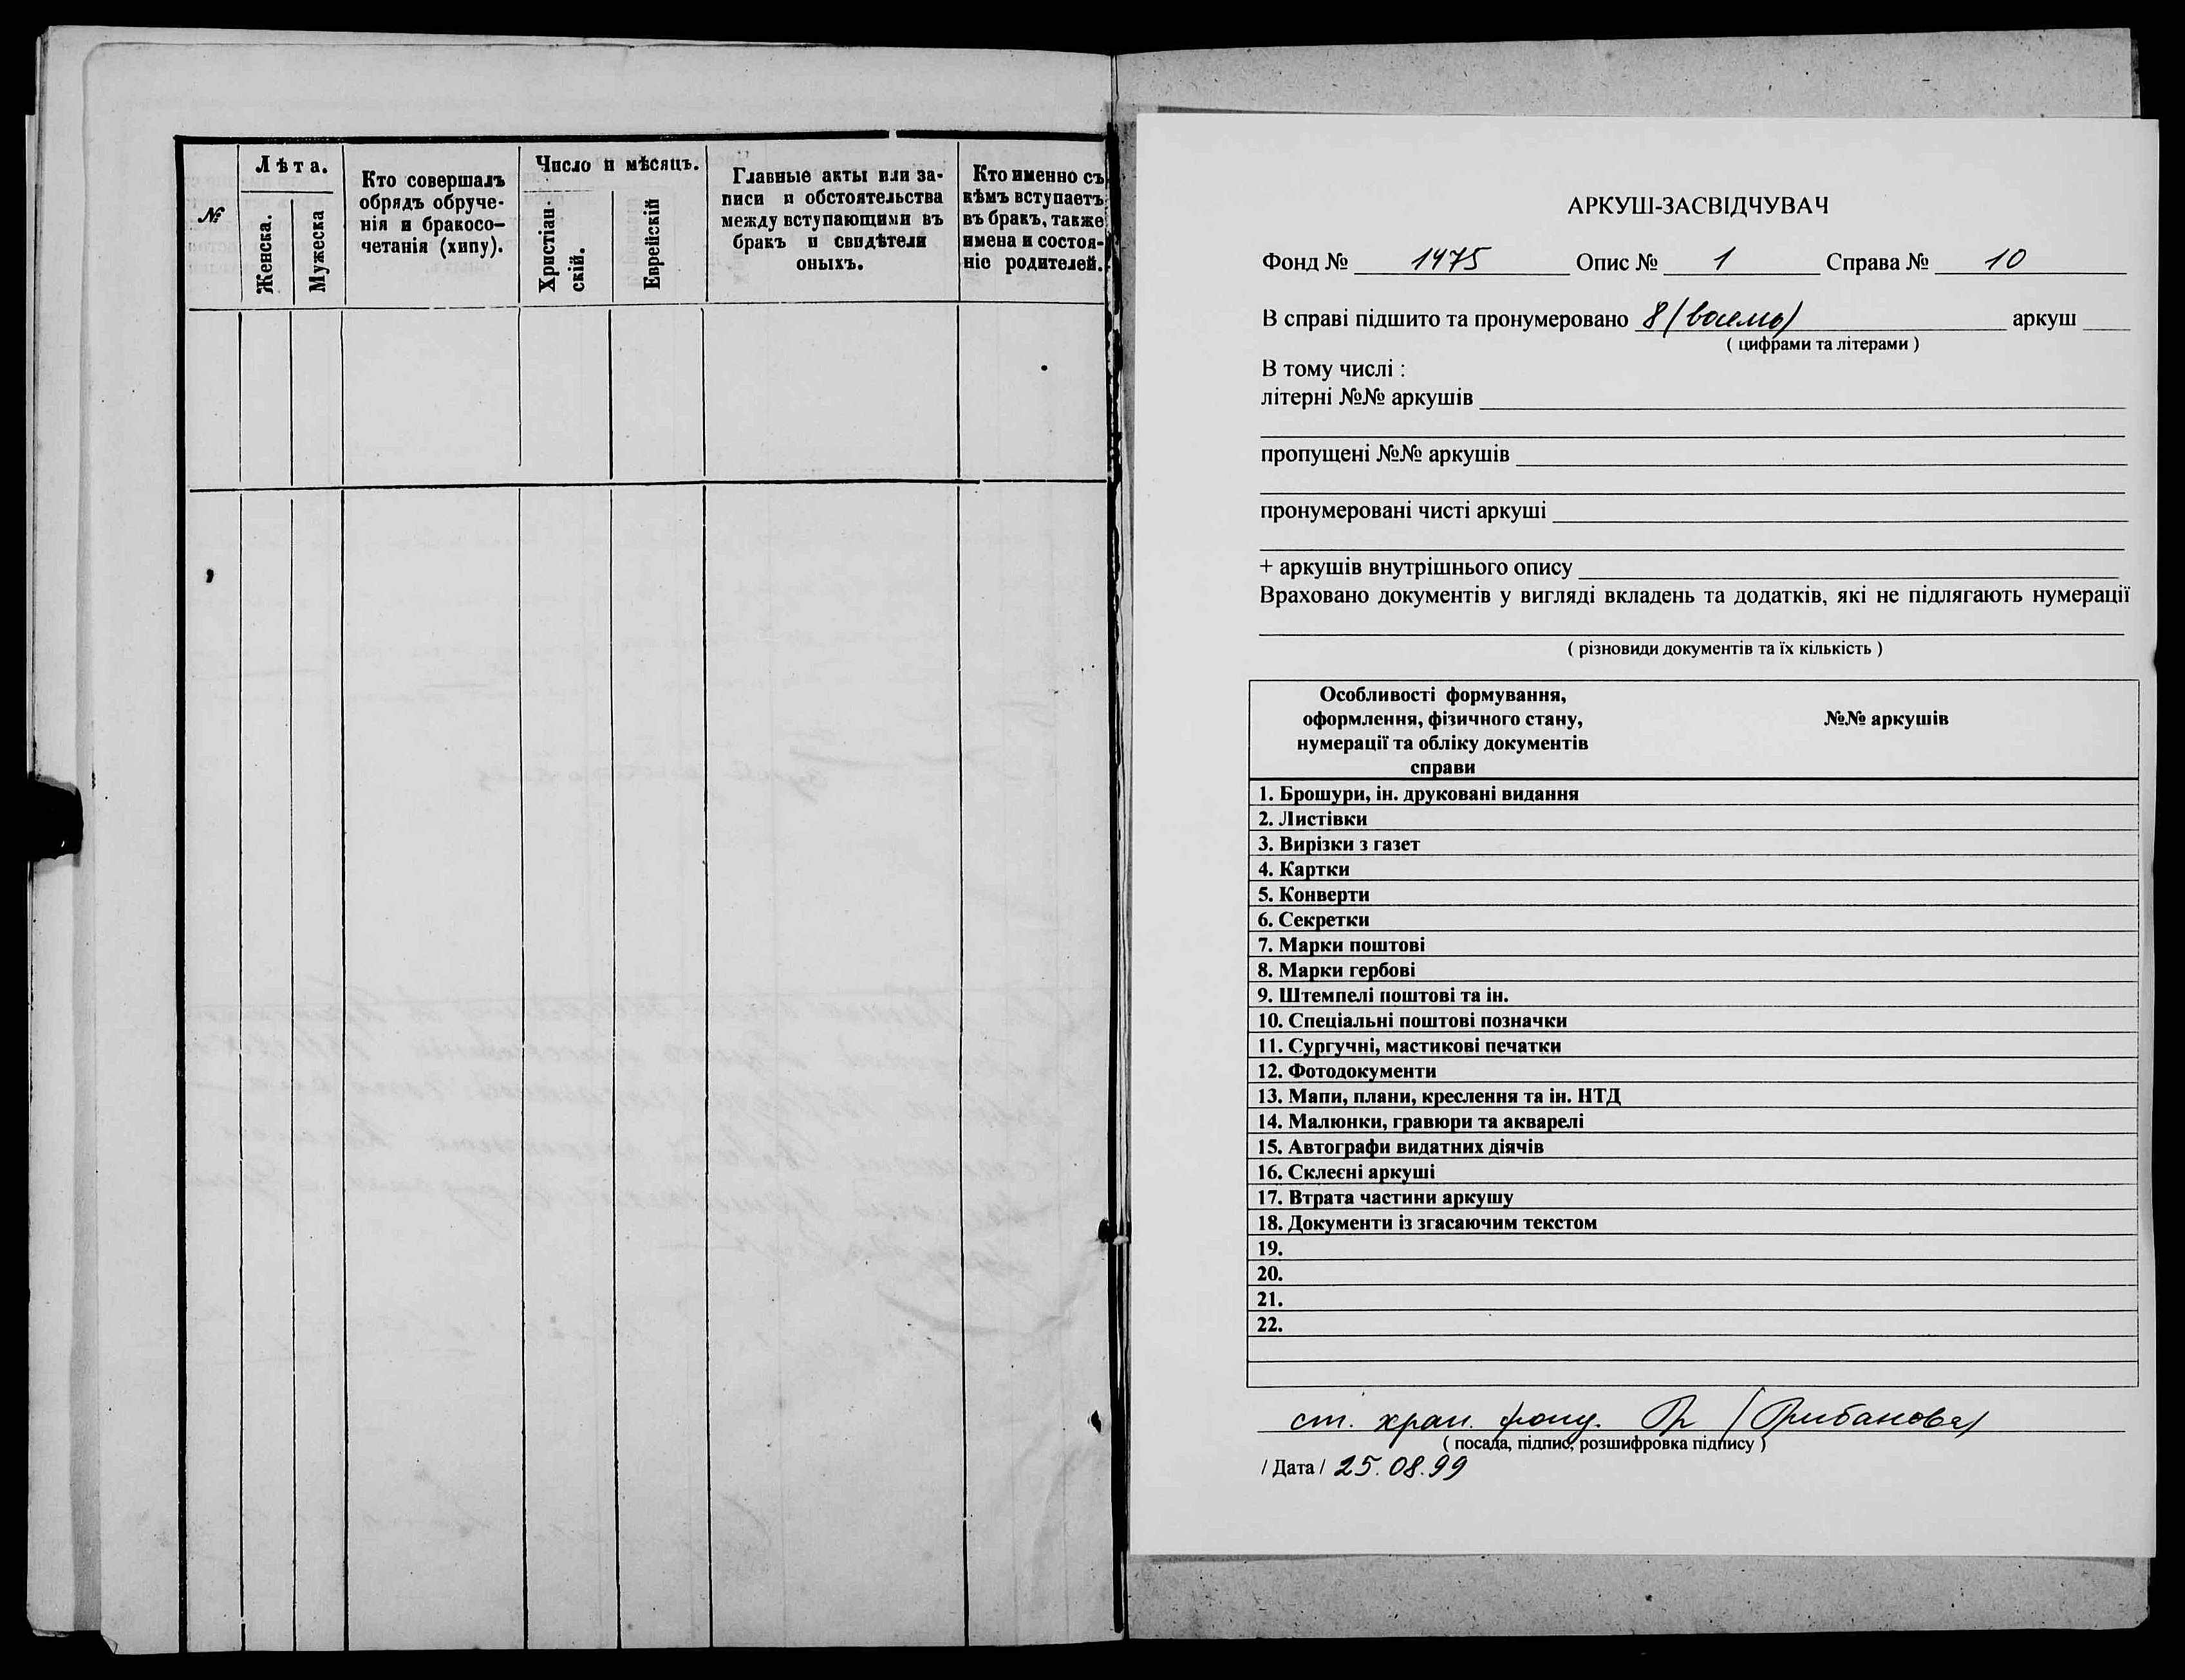 №
Лѣта.
Женска.
Мужеска
Кто совершалъ
обрядъ обруче-
нія и бракосо-
четанія (хипу).
Число и мѣсяцъ.
Христіан-
скій.
Еврейскій
Главные акты или за-
писи и обстоятельства
между вступающими въ
бракъ и свидѣтели
оныхъ.
Кто именно съ
кѣмъ вступаетъ
въ бракъ, также
имена и состоя-
ніе родителей.
АРКУШ-ЗАСВІДЧУВАЧ
Фонд № 1475 Опис № 1 Справа № 10
В справі підшито та пронумеровано 8 (восемь) аркуш
( цифрами та літерами )
В тому числі :
літерні №№ аркушів
пропущені №№ аркушів
пронумеровані чисті аркуші
+ аркушів внутрішнього опису
Враховано документів у вигляді вкладень та додатків, які не підлягають нумерації
( різновиди документів та їх кількість )
Особливості формування,
оформлення, фізичного стану,
нумерації та обліку документів
справи
№№ аркушів
1. Брошури, ін. друковані видання
2. Листівки
3. Вирізки з газет
4. Картки
5. Конверти
6. Секретки
7. Марки поштові
8. Марки гербові
9. Штемпелі поштові та ін.
10. Спеціальні поштові позначки
11. Сургучні, мастикові печатки
12. Фотодокументи
13. Мапи, плани, креслення та ін. НТД
14. Малюнки, гравюри та акварелі
15. Автографи видатних діячів
16. Склеєні аркуші
17. Втрата частини аркушу
18. Документи із згасаючим текстом
19.
20.
21.
22.
ст. хран. фонд.
( посада, підпис, розшифровка підпису )
/ Дата / 25.08.99